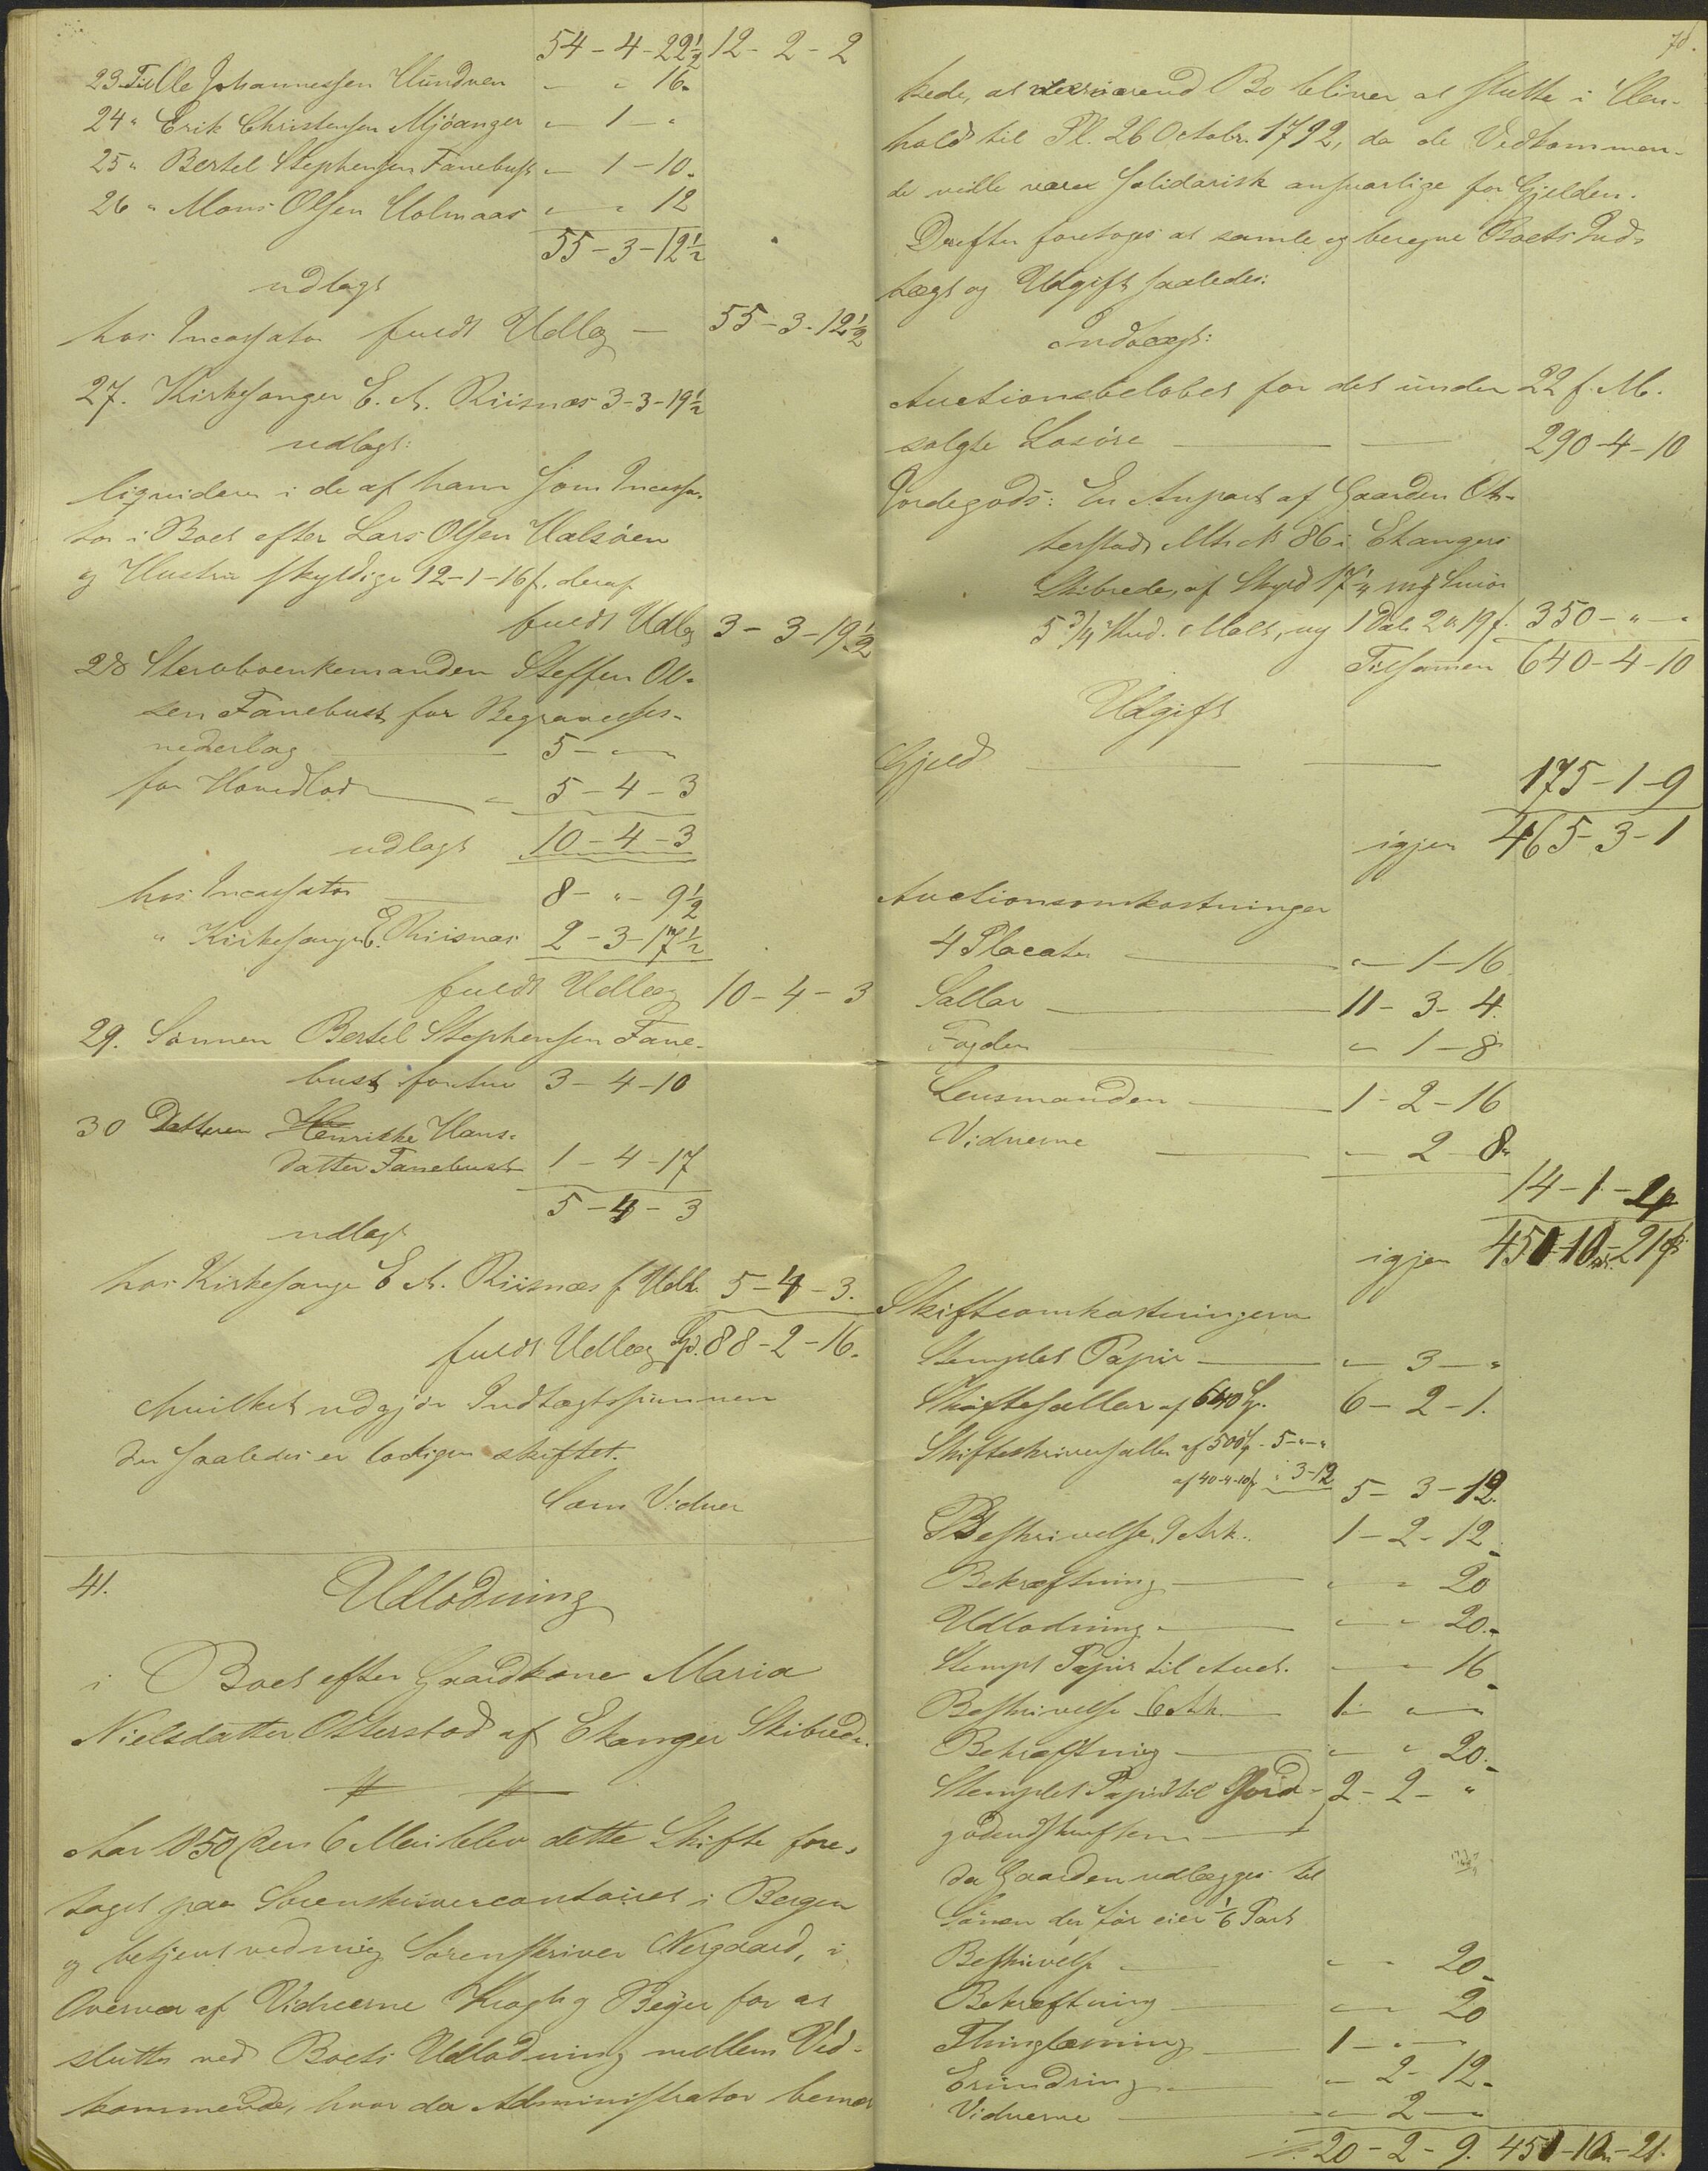 54-4-22½ 12-2-2
23 Til Ole Johannessen Hundven - " 16.
24 " Erik Christensen Mjöanger " 1 - "
25 " Bertel Stephensen Fanebust - 1-10.
26 " Mons Olsen Holmaas - " 12
55-3-12½
udlagt
hos Incassator fuldt Udlæg - 55-3-12½
27. Kirkesanger E. A. Riisnæs 3-3-19½
udlagt:
liqviderer i de af ham som Incassa-
tor i Boet efter Lars Olsen Halsöen
og Hustru skyldige 12-1-16 ſ. deraf
fuldt Udlæg 3-3-19½
28 Stervboenkemanden Steffen Ol-
sen Fanebust for Begravelses-
nederlag - 5 - " - "
for Hovedlod - 5-4-3
udlagt 10-4-3
hos Incassator 8- " - 9½
" Kirkesanger E. Riisnæs 2-3-17½
fuldt Udlæg 10-4-3
29. Sönnen Bertel Stephensen Fane-
bust 3-4-10
30 Datteren Henrikke Hans-
datter Fanebust 1-4-17
5-4-3
udlagt
hos Kirkesanger E A. Riisnæs f Udl. 5-4-3.
fuldt Udlæg Sp. 88-2-16.
hvilket udgjör Indtægtssummen
der saaledes er lovligen skiftet.
Som Vidner
41. Udlodning
i Boet efter Gaardkone Maria
Nielsdatter Otterstad af Echanger Skibrede.
Aar 1850 den 6 Mai blev dette Skifte fore-
taget paa Sorenskrivercontoiret i Bergen
og betjent ved mig Sorenskriver Nergaard, i
Overvær af Vidnerne Kragh og Beyer for at
sluttes ved Boets Udlodning mellem Ved-
kommende, hvor da Administrator bemær-
78.
kede, at nærværend Bo bliver at slutte i Hen-
hold til Pl. 26 Octobr. 1792, da de Vedkommen-
de vedblive være solidarisk ansvarlige for Gjelden.
Derefter foretoges at samle og beregne Boets Ind-
tægt og Udgift saaledes:
Indtægt:
Auctionsbelöbet for det under 22 f. M.
solgte Lösöre 290-4-10
Jordegods: En Anpart af Gaarden Ot-
terstad Mtr. N 86 i Echangers
Skibrede, af Skyld 17¼ mk Smör
5¾ Kud. Malt, ny 1 Dal. 2 " 19 ſ. 350- " - "
Tilsammen 640-4-10
Udgift
Gjeld 175-1-9
igjen 465-3-1
Auctionsomkostninger
4 Placater " - 1-16
Sallar 11-3-4.
Fogden " 1-8
Lensmanden 1-2-16
Vidnerne " - 2-8
14-1-4
igjen 451-1-21
Skifteomkostningerne
Stemplet Papir " 3 - "
Skiftesallar af 640 Sp. 6-2-1.
Skifteskriversallar af 500 Sp. 5- " - "
af 40-4-10 ſ " 3-12 5-3-12.
Beskrivelse, 9 Ark. 1-2-12
Bekræftning " - " 20
Udlodning " - " 20.
Stempl Papir til Auct. - " 16
Beskrivelse 6 Ark. 1 " - "
Bekræftning " - " 20.
Stemplet Papir til Jord- 2-2- "
godsudskriften
da Gaarden udlægges til
Sönnen der för eier 1/6 Part
Beskrivelse " - " 20
Bekræftning " 20
Thinglæsning 1 - " - "
Erindring " 2-12.
Vidnerne " 2 - "
20-2-9. 451-1-21.